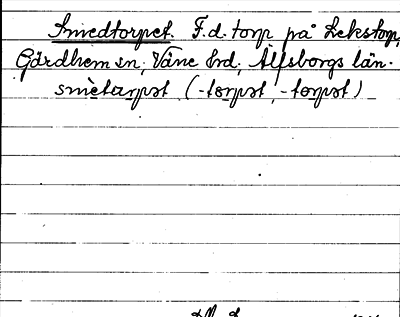 Smedtorpet. F.d. torp på Lekstorp,
Gärdhem sn, Väne hd, Älfsborgs län.
smèta̱rpət (-to̱rpət, -to̱rpət)